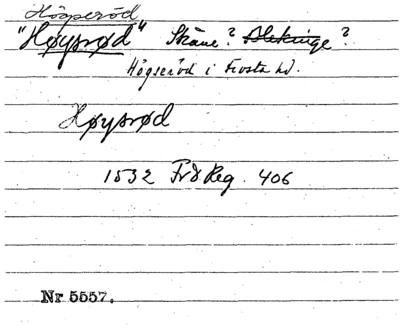 Högseröd
"Høysrød" Skåne? Blekinge?
Högseröd i Frosta hd.
Høysrød
1532 FrdReg. 406
Nr 5557.